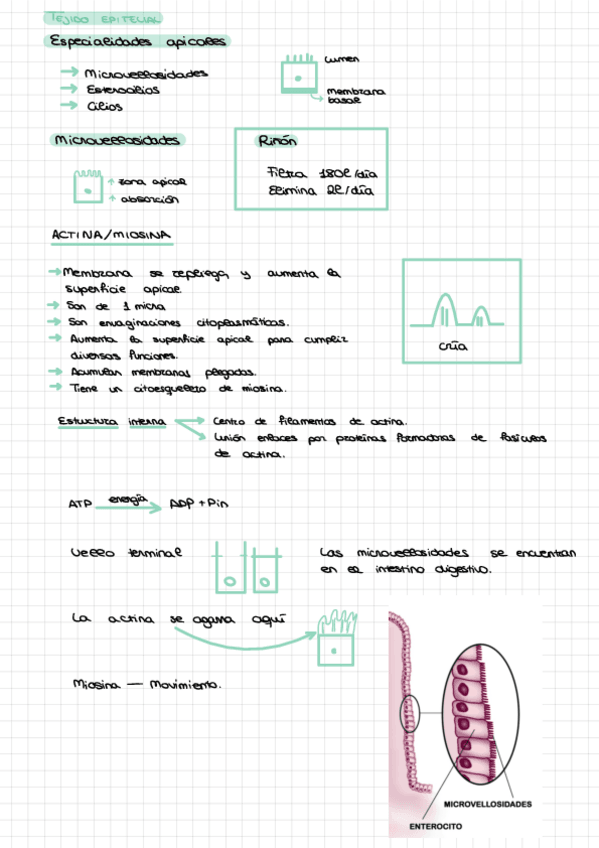 TEJIDO EPITELIAL
Especialidades apicales
→ Microvellosidades
→ Esterocilios
→ Cilios
Lumen
membrana
basal
Microvellosidades
↑ zona apical
↑ absorción
Riñón
Filtra 180l/día
Elimina 2l/día
ACTINA/MIOSINA
→ Membrana se repliega y aumenta la
superficie apical.
→ Son de 1 micra
→ Son envaginaciones citoplasmáticas.
→ Aumenta la superficie apical para cumplir
diversas funciones.
→ Acumulan membranas plegadas.
→ Tiene un citoesqueleto de miosina.
cría
Estuctura interna → Centro de filamentos de actina.
→ Unión enlaces por proteínas formadoras de fasículos
de actina.
ATP energía → ADP + Pin
Vello terminal
Las microvellosidades se encuentran
en el intestino digestivo.
La actina se agarra aquí
Miosina — Movimiento.
MICROVELLOSIDADES
ENTEROCITO